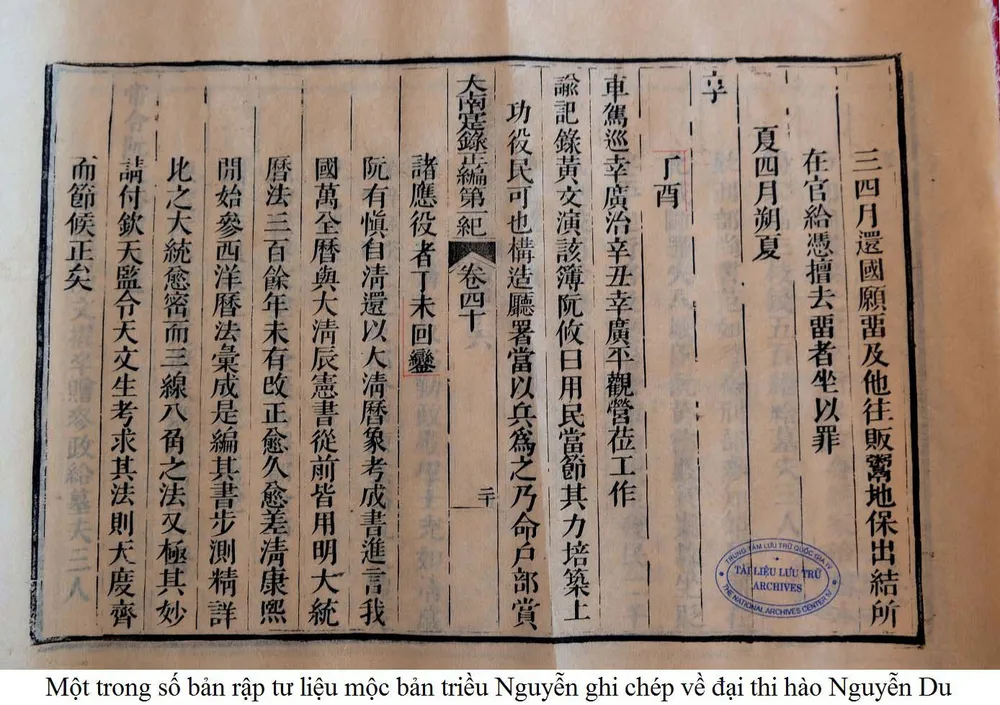 三四月還國願畱及他往販鬻地保出結所
在官給憑擅去畱者坐以罪
夏四月朔夏
丁酉
車駕巡幸廣治辛丑幸廣平觀營莅工作
諭記錄黃文演該簿阮攸曰用民當節其力培築土
功役民可也構造廳署當以兵爲之乃命戶部賞
大南寔錄正編第一紀 卷四十 二十
諸應役者丁未回鑾
阮有慎自淸還以大淸曆象考成書進言我
國萬全曆與大淸辰憲書從前皆用明大統
曆法三百餘年未有改正愈久愈差淸康熙
開始參西洋曆法彙成是編其書步測精詳
比之大統愈密而三線八角之法又極其妙
請付欽天監令天文生考求其法則天度齊
而節候正矣
TRUNG TÂM LƯU TRỮ QUỐC GIA IV
TÀI LIỆU LƯU TRỮ
ARCHIVES
THE NATIONAL ARCHIVES CENTER IV
Một trong số bản rập tư liệu mộc bản triều Nguyễn ghi chép về đại thi hào Nguyễn Du